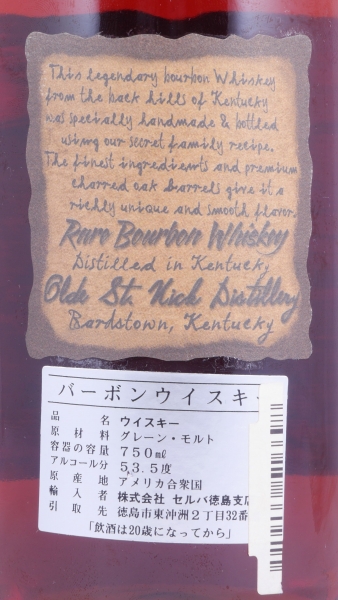 This legendary bourbon Whiskey
from the back hills of Kentucky
was specially handmade & bottled
using our secret family recipe.
The finest ingredients and premium
charred oak barrels give it a
richly unique and smooth flavor.
Rare Bourbon Whiskey
Distilled in Kentucky
Olde St. Nick Distillery
Bardstown, Kentucky
バーボンウイスキー
品名 ウイスキー
原材料 グレーン・モルト
容器の容量 750ml
アルコール分 53.5度
原産地 アメリカ合衆国
輸入者 株式会社 セルバ徳島支店
引取先 徳島市東沖洲2丁目32番
「飲酒は20歳になってから」